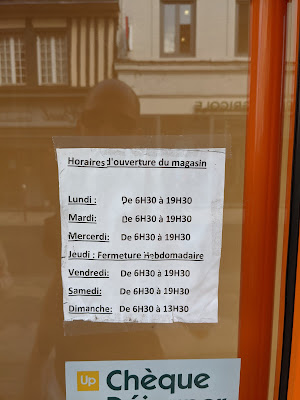 RICOLE
Horaires d'ouverture du magasin
Lundi : De 6H30 à 19H30
Mardi: De 6H30 à 19H30
Mercerdi: De 6H30 à 19H30
Jeudi : Fermeture Hebdomadaire
Vendredi: De 6H30 à 19H30
Samedi: De 6H30 à 19H30
Dimanche: De 6H30 à 13H30
Up Chèque
Déjeuner